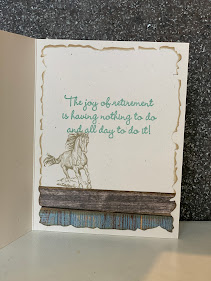 The joy of retirement
is having nothing to do
and all day to do it!